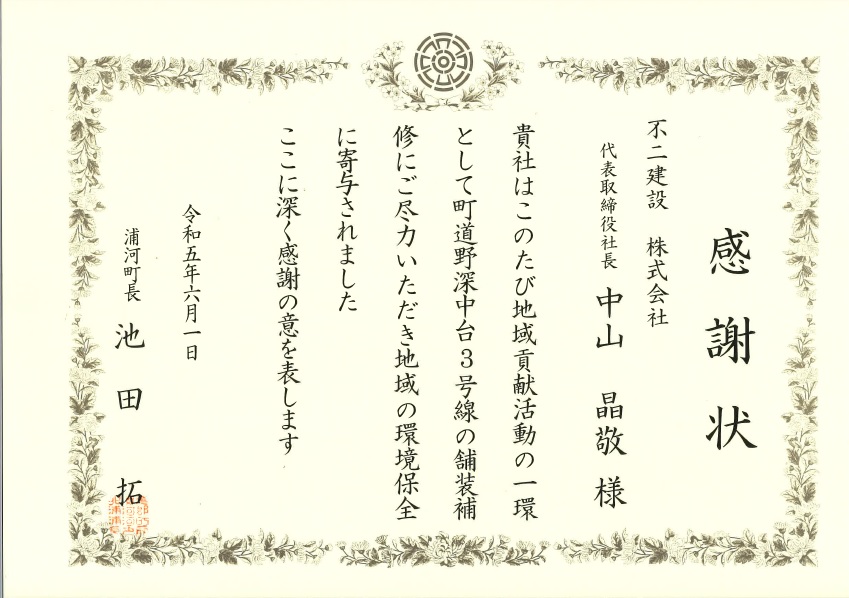 感謝状
不二建設 株式会社
代表取締役社長 中山 晶敬 様
貴社はこのたび地域貢献活動の一環
として町道野深中台3号線の舗装補
修にご尽力いただき地域の環境保全
に寄与されました
ここに深く感謝の意を表します
令和五年六月一日
浦河町長 池田 拓